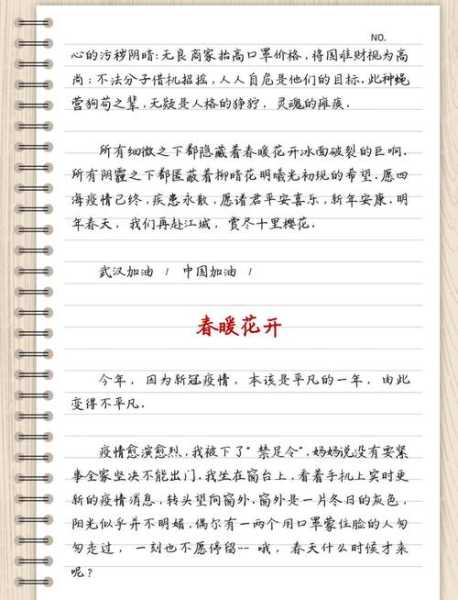 NO.
心的污秽阴暗:无良商家抬高口罩价格，将国难财视为高
尚;不法分子借机招摇，人人自危是他们的目标.此种蝇
营狗苟之辈，无疑是人格的狰狞，灵魂的瘫痪.
所有细微之下都隐藏着春暖花开冰面破裂的巨响.
所有阴霾之下都匿藏着柳暗花明曦光初现的希望.愿四
海疫情已终，疾患永散，愿诸君平安喜乐，新年安康.明
年春天，我们再赴江城，赏尽十里樱花.
武汉加油！中国加油！
春暖花开
今年，因为新冠疫情，本该是平凡的一年，由此
变得不平凡.
疫情愈演愈烈，我被下了"禁足令".妈妈说没有要紧
事全家坚决不能出门.我坐在窗台上，看着手机上实时更
新的疫情消息，转头望向窗外.窗外是一片冬日的灰色，
阳光似乎并不明媚，偶尔有一两个用口罩蒙住脸的人匆
匆走过，一刻也不愿停留--哦，春天什么时候才来
呢?